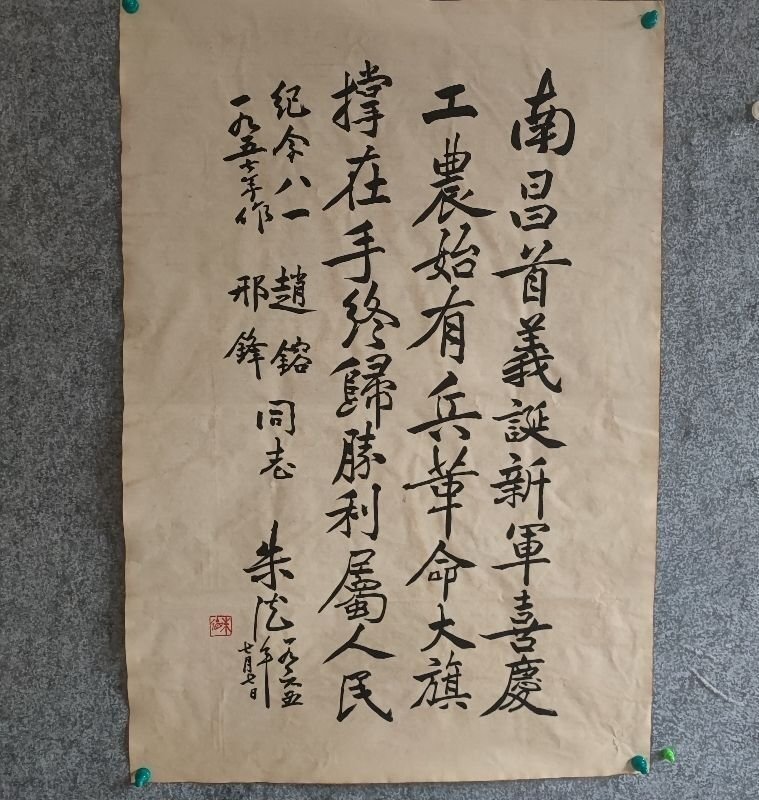 南昌首義誕新軍喜慶
工農始有兵革命大旗
撑在手終歸勝利屬人民
紀念八一
一九五七年作
趙鎔
邢鋒
同志
朱德
一九六五
年
七月七日
朱德